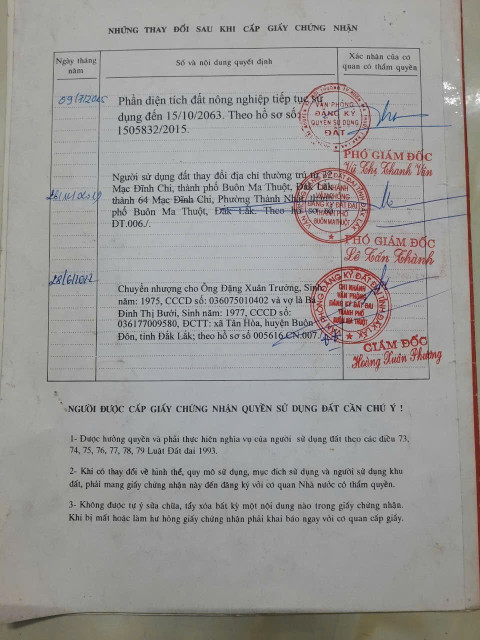 NHỮNG THAY ĐỔI SAU KHI CẤP GIẤY CHỨNG NHẬN
Ngày tháng năm
Số và nội dung quyết định
Xác nhận của cơ quan có thẩm quyền
Phần diện tích đất nông nghiệp tiếp tục sử
dụng đến 15/10/2063. Theo hồ sơ số:
1505832/2015.
VĂN PHÒNG
ĐĂNG KÝ
QUYỀN SỬ DỤNG
ĐẤT
PHÓ GIÁM ĐỐC
Vũ Thị Thanh Vân
Người sử dụng đất thay đổi địa chỉ thường trú từ
Mạc Đĩnh Chi, thành phố Buôn Ma Thuột, Đắk Lắk
thành 64 Mạc Đĩnh Chi, Phường Thành Nhất,
phố Buôn Ma Thuột, Đắk Lắk. Theo hồ sơ
ĐT.006./.
CHI NHÁNH
VĂN PHÒNG
ĐĂNG KÝ ĐẤT ĐAI
THÀNH PHỐ
BUÔN MA THUỘT
PHÓ GIÁM ĐỐC
Lê Tấn Thành
Chuyển nhượng cho Ông Đặng Xuân Trưởng, Sinh
năm: 1975, CCCD số: 036075010402 và vợ là Bà
Đinh Thị Bưởi, Sinh năm: 1977, CCCD số:
036177009580, ĐCTT: xã Tân Hòa, huyện Buôn
Đôn, tỉnh Đắk Lắk; theo hồ sơ số 005616.CN.007./.
VĂN PHÒNG ĐĂNG KÝ ĐẤT ĐAI TỈNH ĐẮK LẮK
CHI NHÁNH
VĂN PHÒNG
ĐĂNG KÝ ĐẤT ĐAI
THÀNH PHỐ
BUÔN MA THUỘT
GIÁM ĐỐC
Hoàng Xuân Phương
NGƯỜI ĐƯỢC CẤP GIẤY CHỨNG NHẬN QUYỀN SỬ DỤNG ĐẤT CẦN CHÚ Ý !
1- Được hưởng quyền và phải thực hiện nghĩa vụ của người sử dụng đất theo các điều 73,
74, 75, 76, 77, 78, 79 Luật Đất đai 1993.
2- Khi có thay đổi về hình thể, quy mô sử dụng, mục đích sử dụng và người sử dụng khu
đất, phải mang giấy chứng nhận này đến đăng ký với cơ quan Nhà nước có thẩm quyền.
3- Không được tự ý sửa chữa, tẩy xóa bất kỳ một nội dung nào trong giấy chứng nhận.
Khi bị mất hoặc làm hư hỏng giấy chứng nhận phải khai báo ngay với cơ quan cấp giấy.